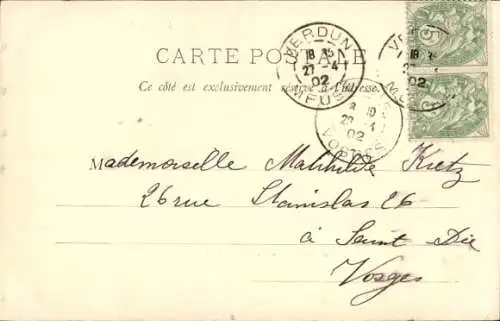 CARTE POSTALE
Ce côté est exclusivement réservé à l'adresse.
VERDUN
18 35
27 - 4
02
MEUSE
VE
18 3
27
02
M
8 10
02
VOSGES
5
5
Mademoiselle Mathilde Kretz
26 rue Stanislas 26
à Saint Dié
Vosges